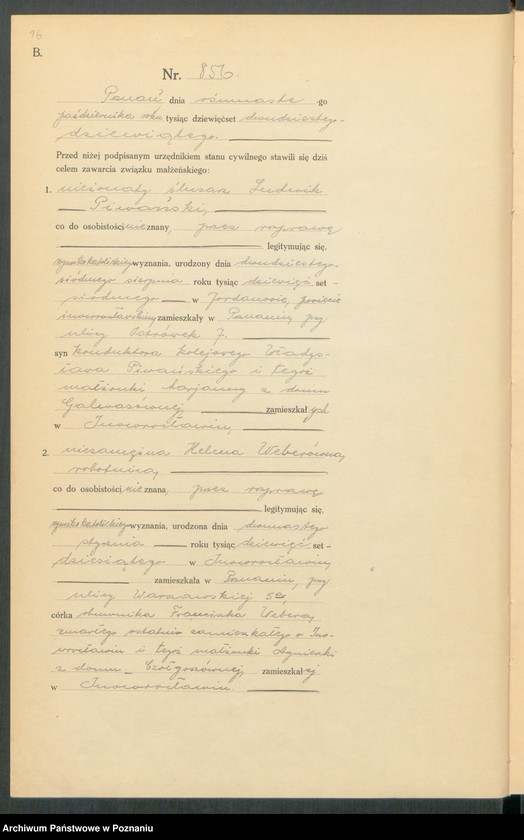 16
B.
Nr. 856.
Poznań dnia ósmnaste go
października roku tysiąc dziewięćset dwudziestego
dziewiątego.
Przed niżej podpisanym urzędnikiem stanu cywilnego stawili się dziś
celem zawarcia związku małżeńskiego:
1. nieżonaty ślusarz Ludwik
Piwański,
co do osobistości nieznany, przez rozprawę
legitymując się,
rzymskokatolickiego wyznania, urodzony dnia dwudziestego
siódmego sierpnia roku tysiąc dziewięć set -
siódmego w Jordanowie, powiecie
inowrocławskim zamieszkały w Poznaniu, przy
ulicy Ostrówek 7.
syn konduktora kolejowego Władys-
ława Piwańskiego i tegoż
małżonki Marjanny z domu
zamieszkałych
w Inowrocławiu,
2. niezamężna Helena Weberówna,
robotnica,
co do osobistości nieznana, przez rozprawę
legitymując się,
rzymskokatolickiego wyznania, urodzona dnia dwunastego
stycznia roku tysiąc dziewięć set -
dziesiątego w Inowrocławiu,
zamieszkała w Poznaniu, przy
ulicy Warszawskiej
córka Franciszka Webera,
zmarłego ostatnio zamieszkałego w Ino-
wrocławiu i tegoż małżonki Agnieszki
z domu zamieszkałej
w Inowrocławiu.
Archiwum Państwowe w Poznaniu